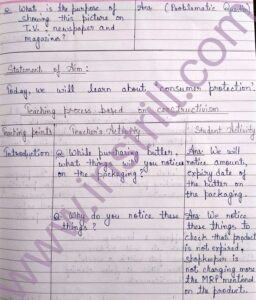 Q. What is the purpose of
showing this picture on
T.V., newspaper and
magazines?
Ans (Problematic Question)
Statement of Aim:
Today, we will learn about consumer protection.
Teaching process based on constructivism
Teaching points Teacher's Activity Student Activity
Introduction
Q. While purchasing butter,
what things will you notice
on the packaging?
Ans: We will
notice amount,
expiry date of
the butter on
the packaging.
Q. Why do you notice these
things?
Ans: We notice
these things to
check that product
is not expired,
shopkeeper is
not changing more
the MRP mentioned
on the product.